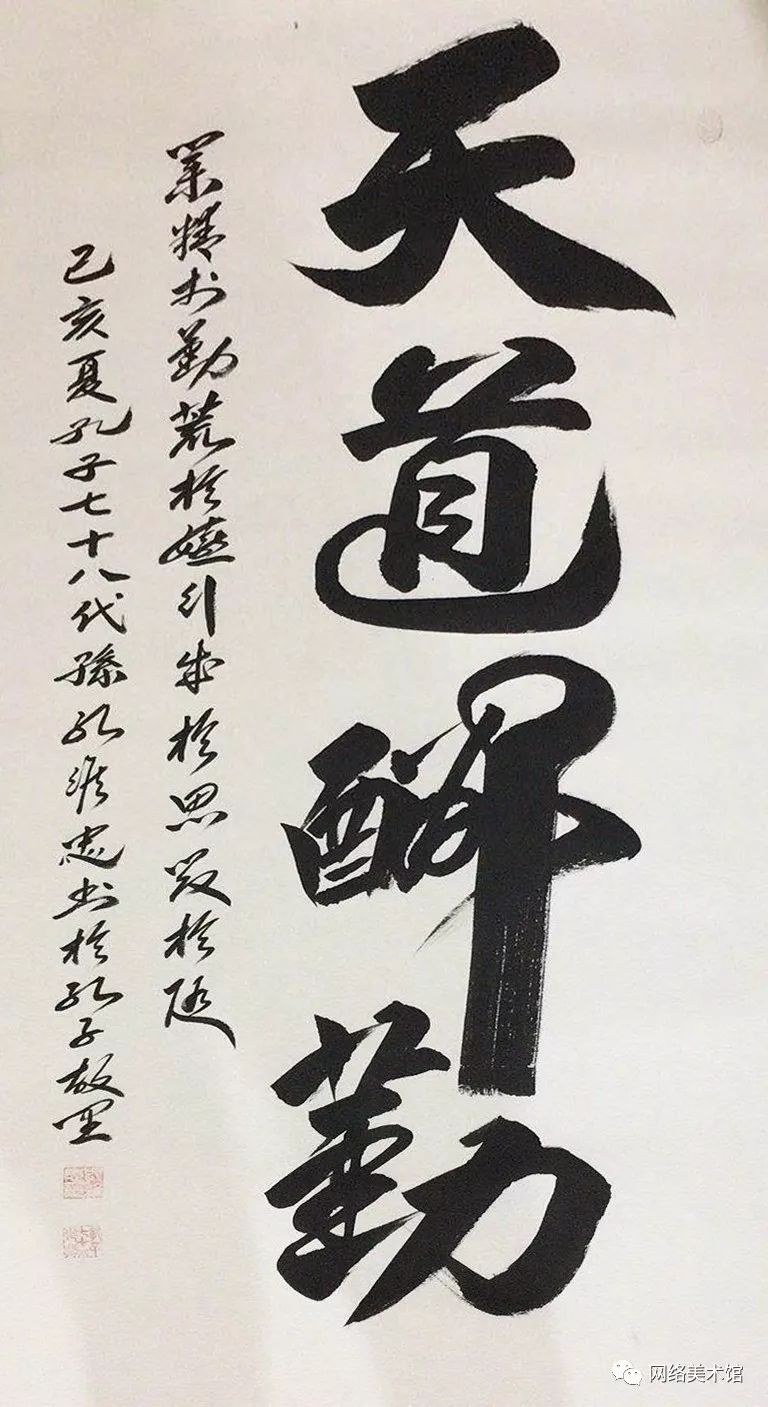 天道酬勤
業精於勤荒於嬉行成於思毀於随
己亥夏孔子七十八代孫孔維忠书於孔子故里
网络美术馆